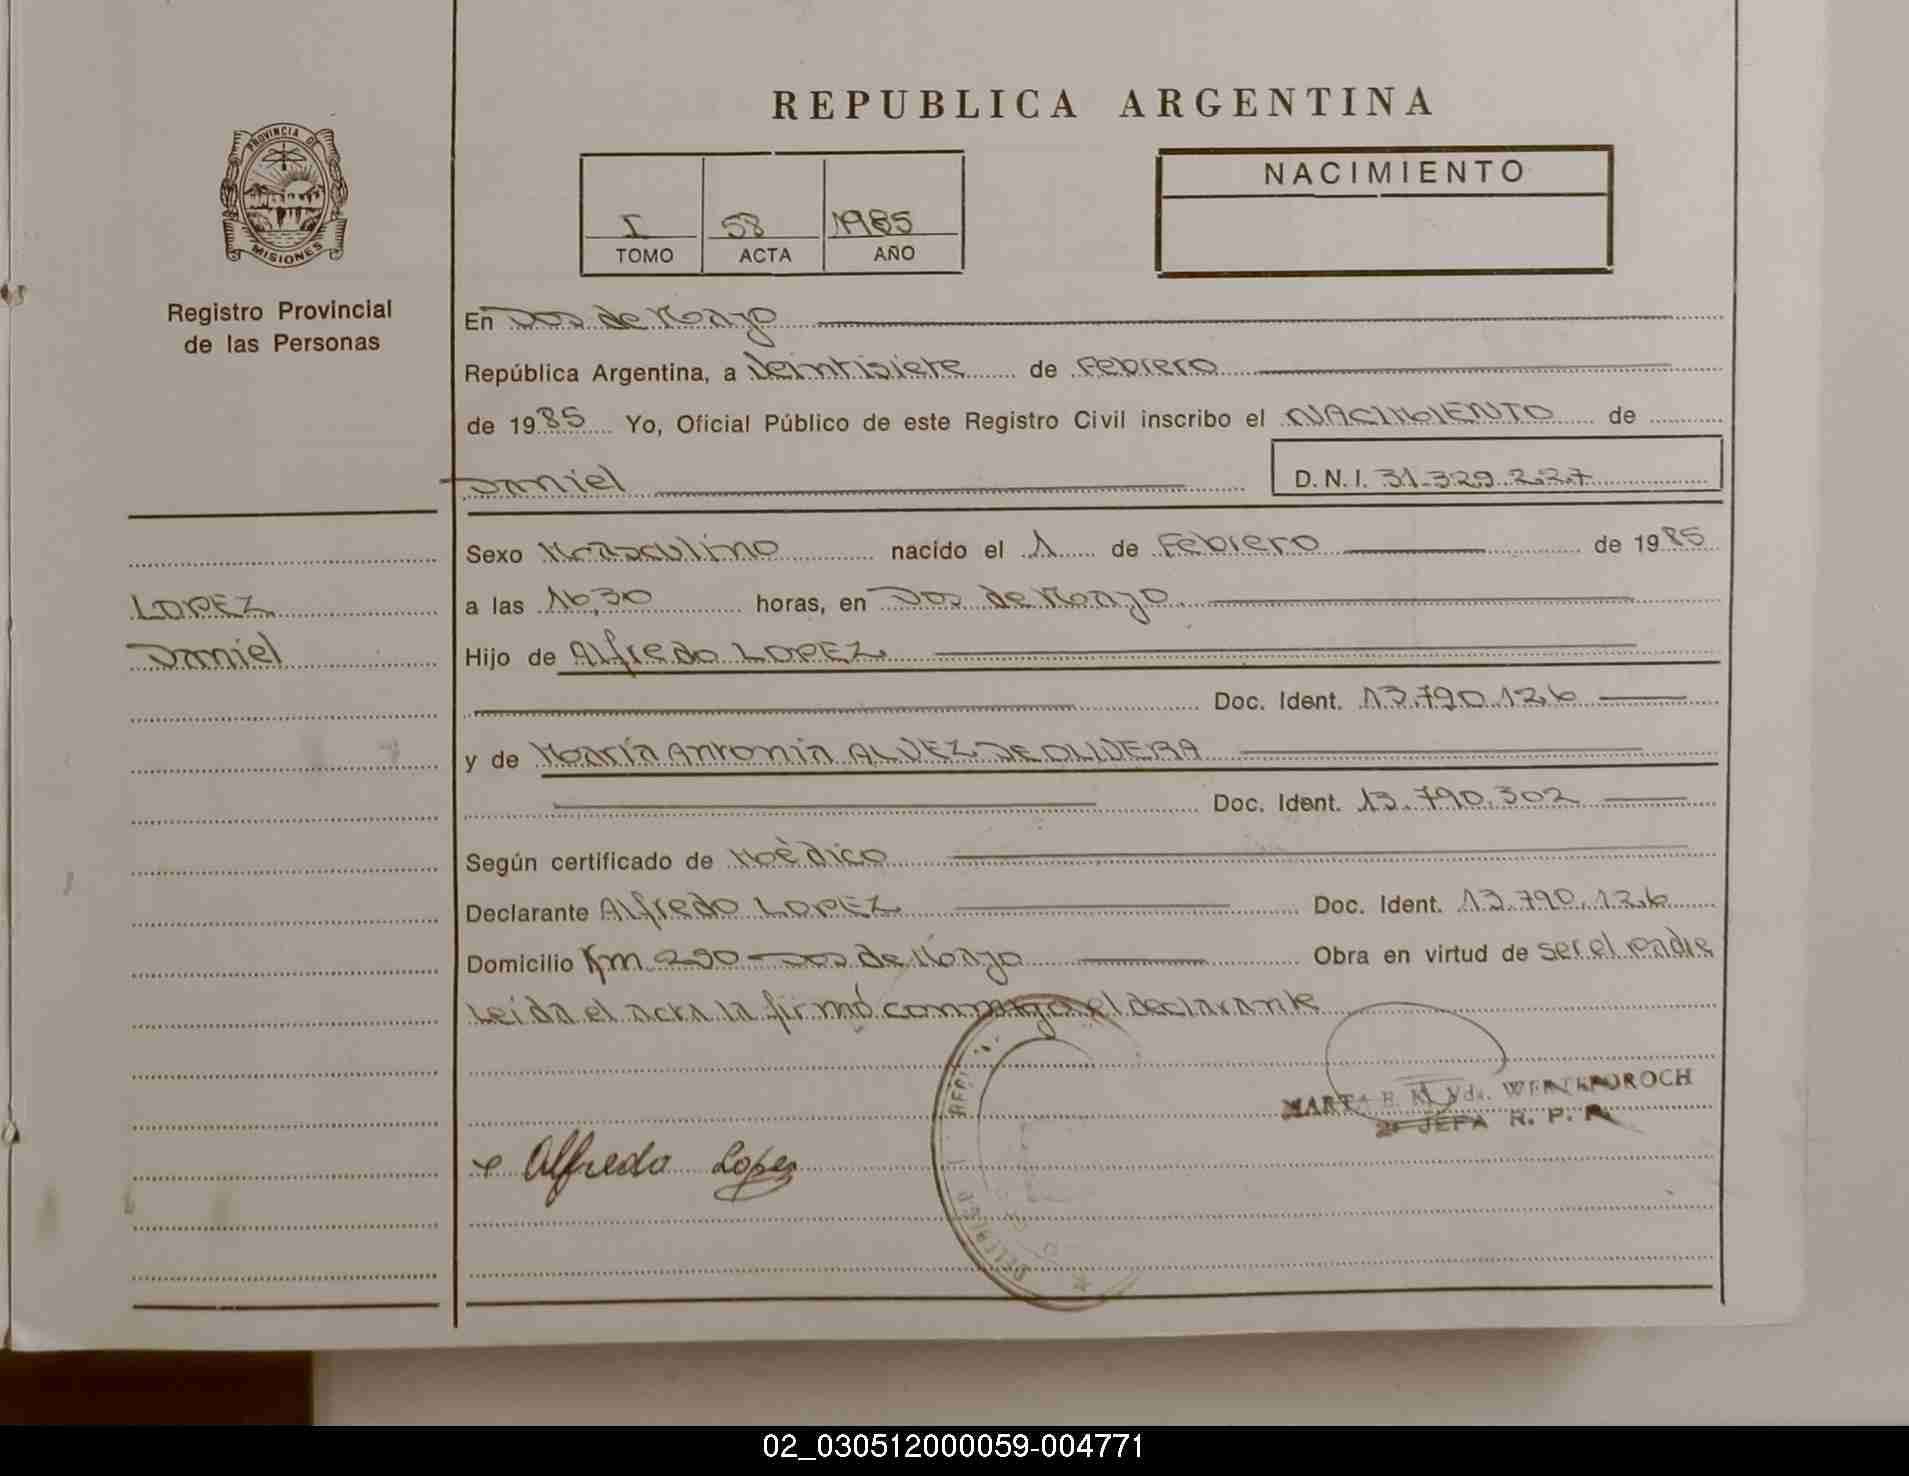 REPUBLICA ARGENTINA
PROVINCIA DE
MISIONES
Registro Provincial
de las Personas
I 58 1985
TOMO ACTA AÑO
NACIMIENTO
En Dos de Mayo
República Argentina, a Veintisiete de Febrero
de 1985 Yo, Oficial Público de este Registro Civil inscribo el NACIMIENTO de
Daniel D.N.I. 31.329.227
LOPEZ
Daniel
Sexo Masculino nacido el 1 de Febrero de 1985
a las 16,30 horas, en Dos de Mayo
Hijo de Alfredo LOPEZ
Doc. Ident. 13.790.126
y de María Antonia ALVEZ DE OLIVEIRA
Doc. Ident. 13.790.302
Según certificado de Médico
Declarante Alfredo LOPEZ Doc. Ident. 13.790.126
Domicilio Km 290 Dos de Mayo Obra en virtud de ser el padre
Leída el acta la firmó conmigo el declarante
MARTA Vda.
2ª JEFA R. P. P.
Alfredo Lopez
02_030512000059-004771